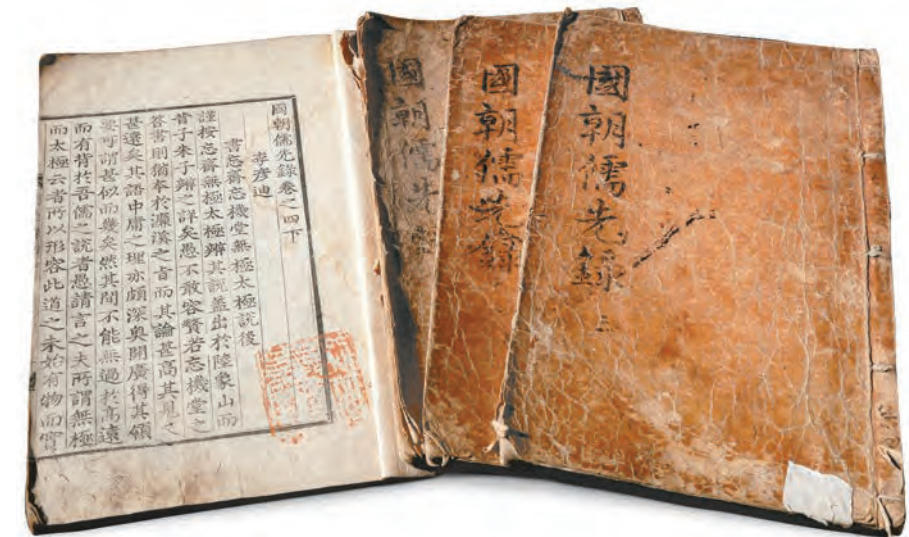 國朝儒先錄卷之四下
李彦迪
書忘齋忘機堂無極太極說後
謹按忘齋無極太極辨其說蓋出於陸象山而
昔子朱子辨之詳矣愚不敢容贅若忘機堂之
答書則猶本於濂溪之旨而其論甚高其見又
甚遠矣其語中庸之理亦頗深奧開廣得其領
要可謂甚似而幾矣然其間不能無過於高遠
而有背於吾儒之說者愚請言之夫所謂無極
而太極云者所以形容此道之未始有物而實
國朝儒先錄 三
國朝儒先錄
國朝儒先